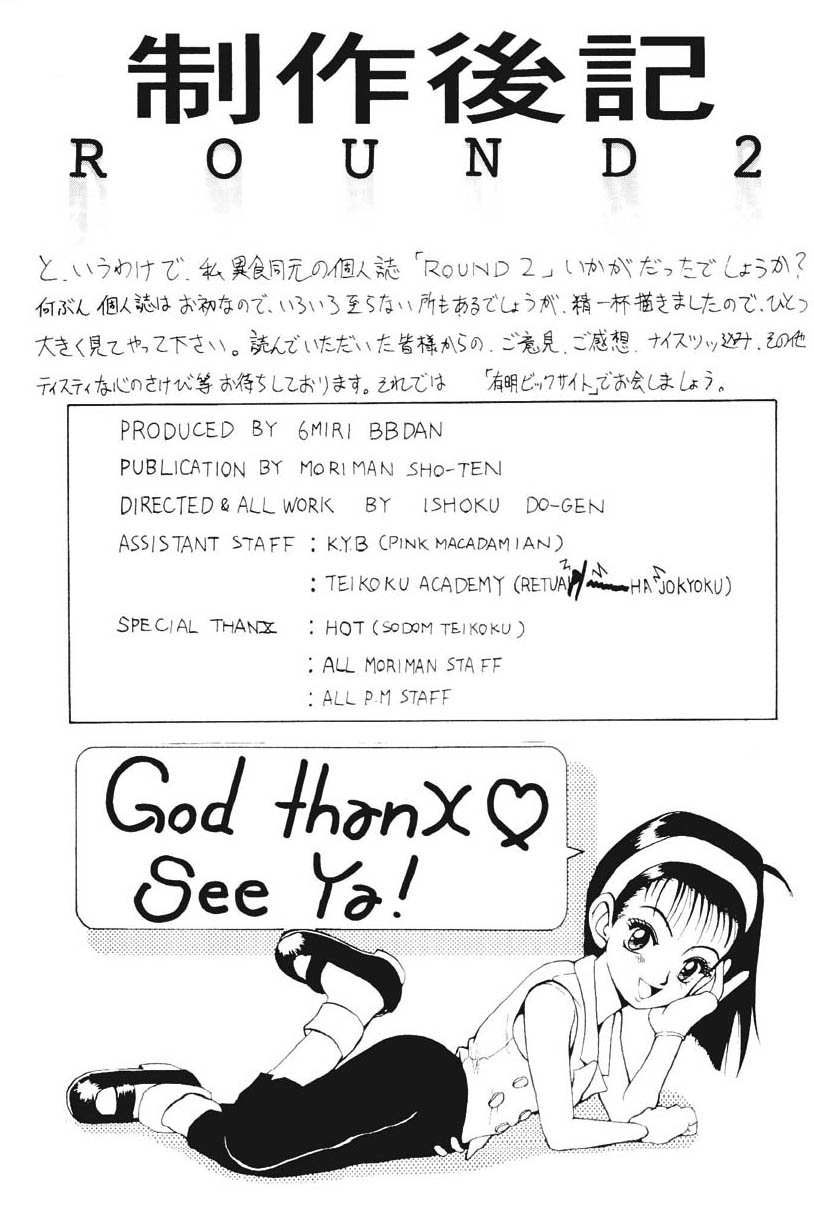 制作後記
ROUND2
と、いうわけで、私 異食同元の個人誌「ROUND 2」いかがだったでしょうか?
何ぶん 個人誌は お初なので、いろいろ至らない所もあるでしょうが、精一杯描きましたので、ひとつ
大きく見てやって下さい。読んでいただいた皆様からの、ご意見、ご感想、ナイスツッ込み、その他
ティスティな心のさけび等 お待ちしております。それでは 「有明ビックサイト」でお会しましょう。
PRODUCED BY 6MIRI BBDAN
PUBLICATION BY MORIMAN SHO-TEN
DIRECTED & ALL WORK BY ISHOKU DO-GEN
ASSISTANT STAFF : K.Y.B (PINK MACADAMIAN)
: TEIKOKU ACADEMY (RETUA HA JOKYOKU)
SPECIAL THANX : HOT (SODOM TEIKOKU)
: ALL MORIMAN STAFF
: ALL P.M STAFF
God thanX♡
See Ya!